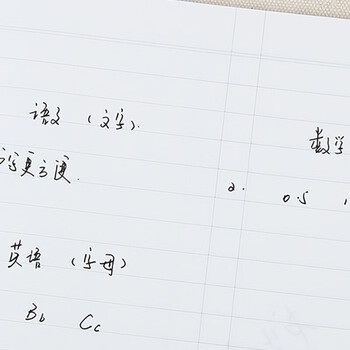 语文（文字）.
数学
字更方便.
2. 0.5
英语（字母）
Bb Cc